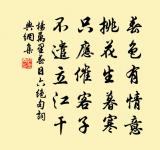 春色有情意
桃花生暮寒
只應催客子
不遣立江干
楊萬里春日六絕句詞
典網集